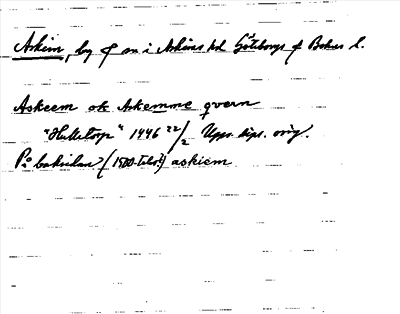 Askim, by o sn i Askims hd Göteborgs o Bohus l.
Askeem ok Askemme qvern
"Hetletorp" 1446 22/2 Upps. dipl. orig.
På baksidan (1500-talet?) askiem